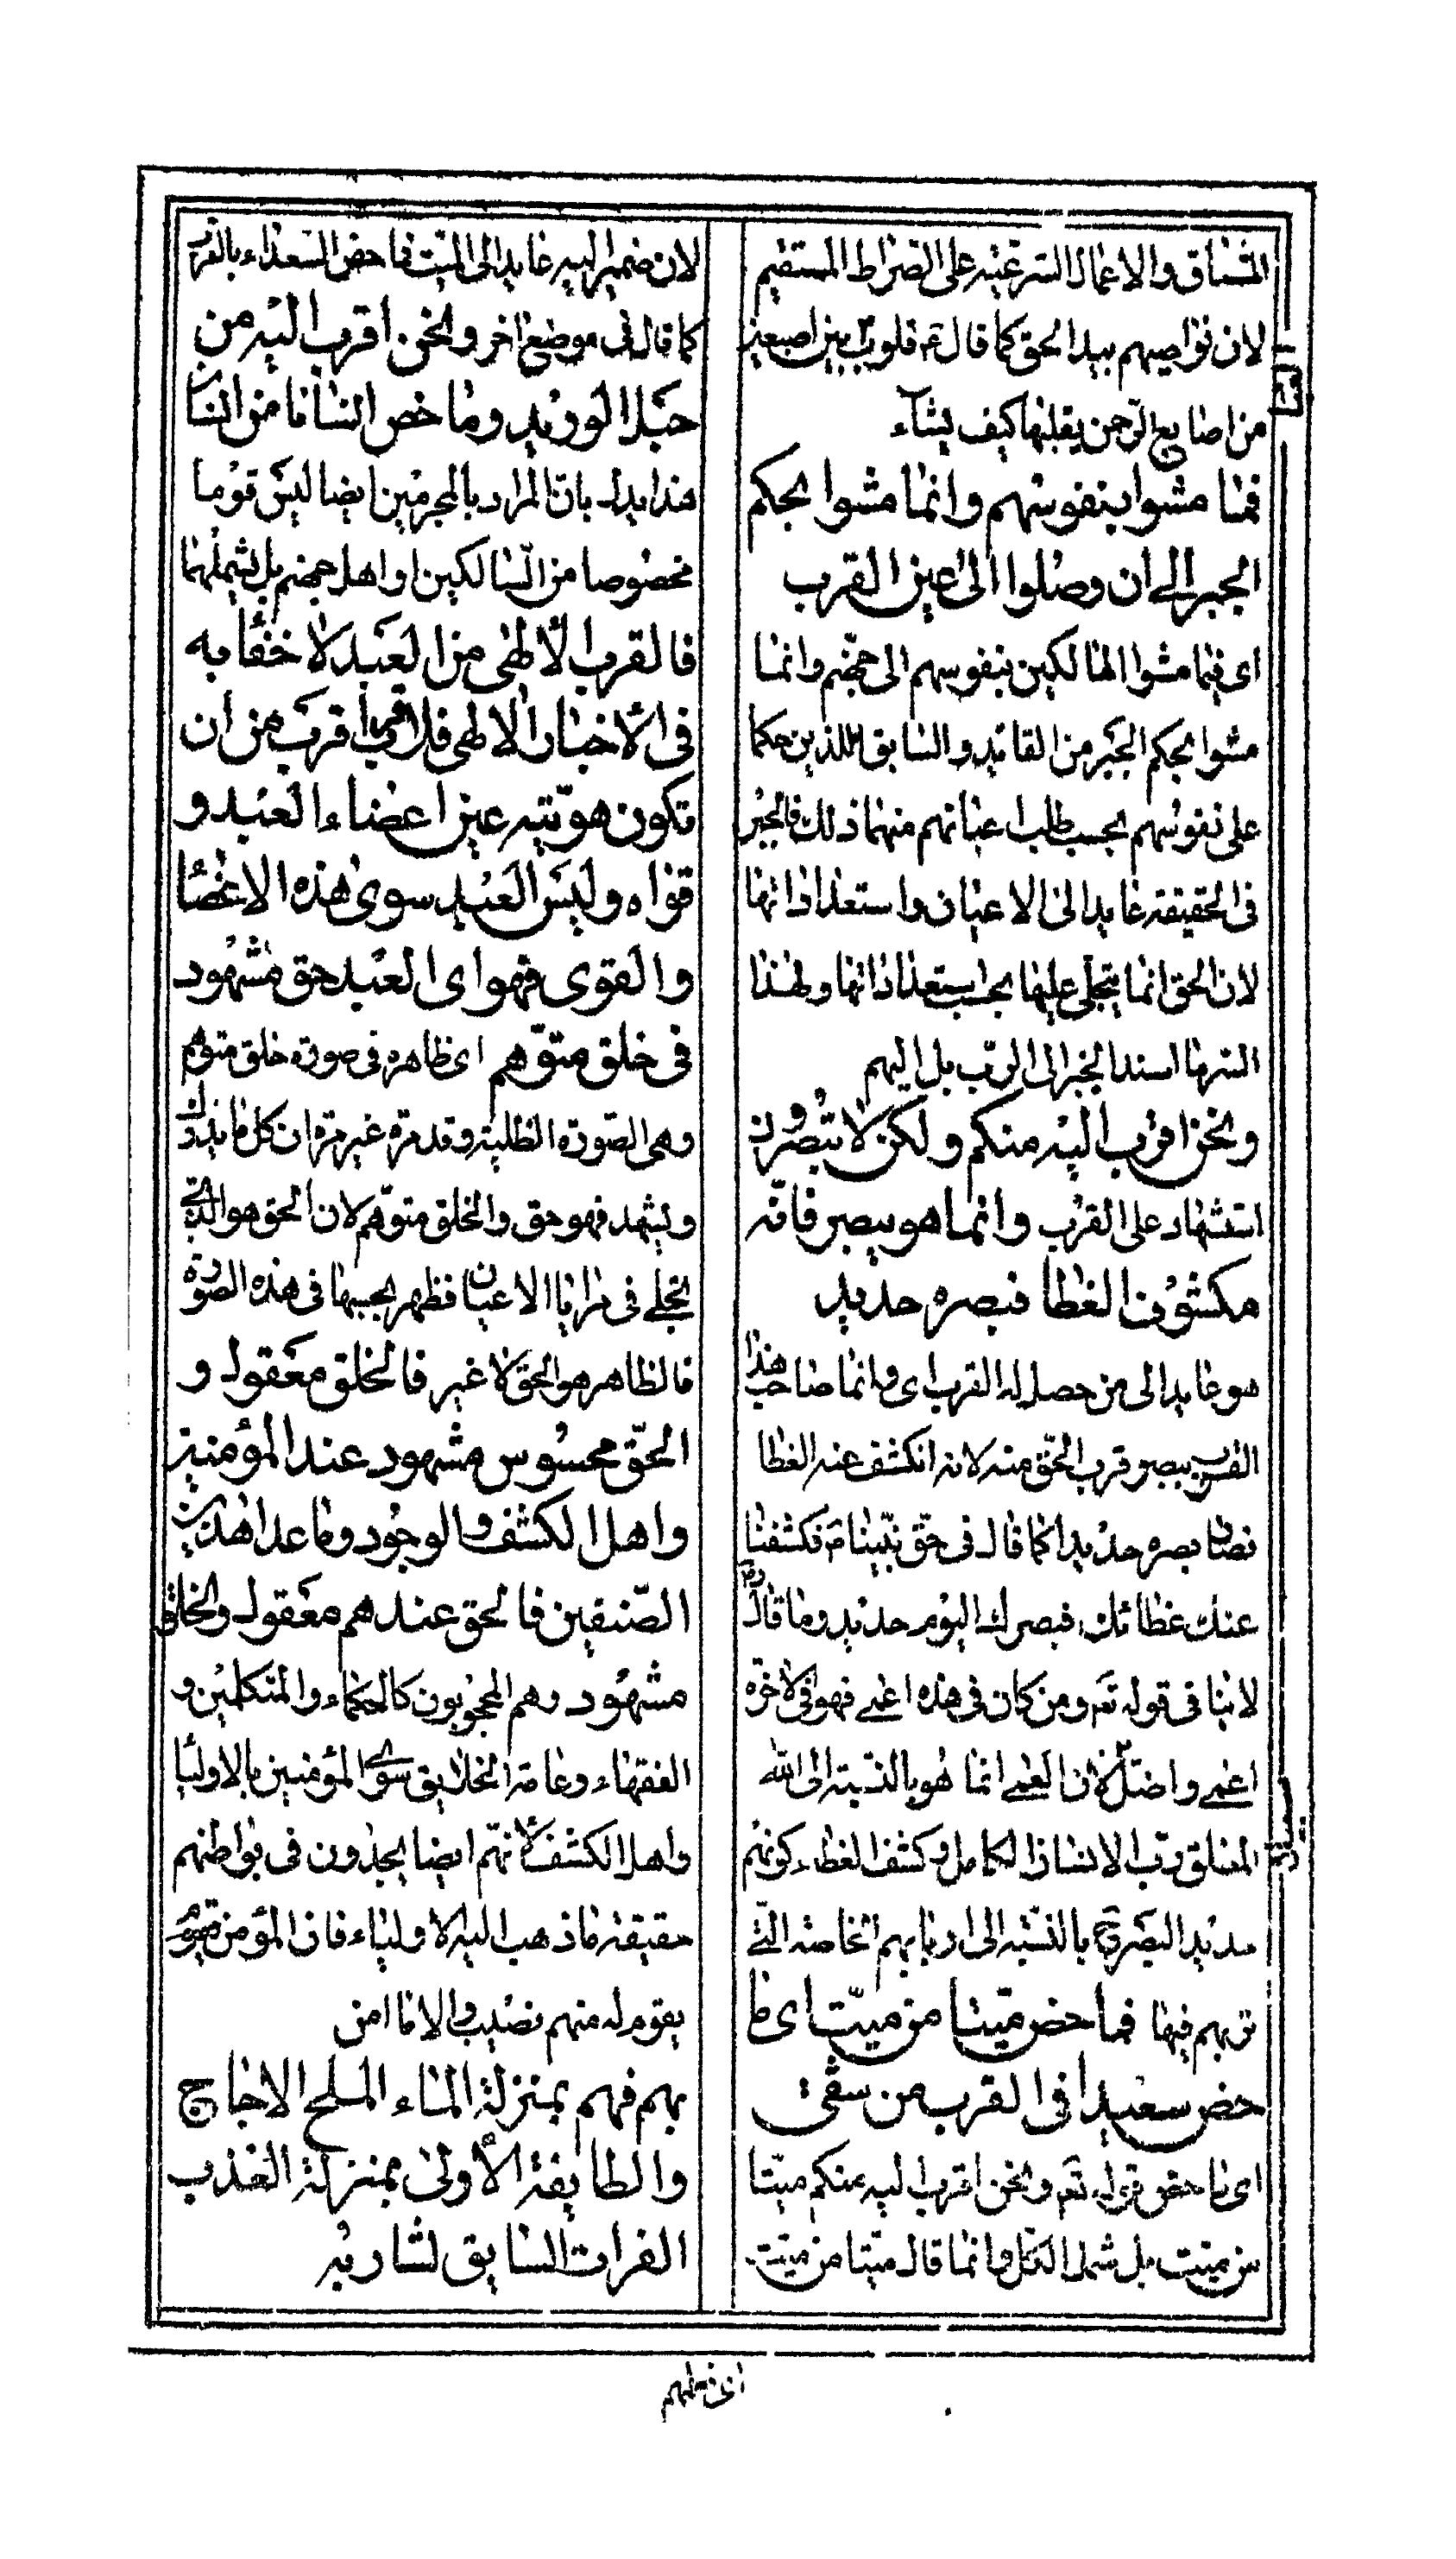 المشاق والاعمال الشرعيه على الصراط المستقيم
لان نواصيهم بيد الحق كما قال ع قلوب بين اصبعين
من اصابع الرحمن يقلبها كيف يشآء
فما مشوا بنفوسهم وانما مشوا بحكم
الجبر الى ان وصلوا الى عين القرب
اى فما مشوا الهالكين بنفوسهم الى جهنم وانما
مشوا بحكم الجبر من القائد والسابق اللذين حكما
على نفوسهم بحسب طلب اعيانهم منهما ذلك فالجبر
فى الحقيقة عايد الى الاعيان واستعداداتها
لان الحق انما يتجلى عليها بحسب استعداداتها ولهذا
اسند الجبر الى الرب بل اليهم
ونحن اقرب اليه منكم ولكن لا تبصرون
استشهاد على القرب وانما هو يبصر فانه
مكشوف الغطا فبصره حديد
هو عايد الى من حصل له القرب اى وانما صاحب هذا
القرب يبصر قرب الحق منه لانه انكشف عنه الغطا
فصار بصره حديدا كما قال فى حق نبينا ص فكشفنا
عنك غطائك فبصرك اليوم حديد وما قال
لا ينافى قوله تعه ومن كان فى هذه اعمى فهو فى الاخره
اعمى واضل لان العمى انما هو بالنسبة الى الله
المطلق رب الانسان الكامل وكشف الغطاء كونهم
حديد البصر بالنسبه الى اربابهم الخاصه التى
تربهم فيها فما خص ميتا من ميت اى ما
خص سعيدا فى القرب من شقى
اى ما خص قوله تعه ونحن اقرب اليه منكم ميتا
من ميت بل شمل الكل وانما قال ميتا من ميت
لان ضمير اليه عايد الى الميت فما خص السعداء بالقرب
كما قال فى موضع اخر ونحن اقرب اليه من
حبل الوريد وما خص انسانا من انسان
هذا يدل بان المراد بالمجرمين ايضا ليس قوما
مخصوصا من السالكين او اهل جهنم بل يشملهما
فالقرب الالهى من العبد لا خفا به
فى الاخبار الالهى فلا قرب اقرب من ان
تكون هويته عين اعضاء العبد و
قواه وليس العبد سوى هذه الاعضا
والقوى فهو اى العبد حق مشهود
فى خلق متوهم اى ظاهره فى صورة خلق متوهم
وهى الصورة الظليه وقد مرة غير مرة ان كل ما يدرك
ويشهد فهو حق والخلق متوهم لان الحق هو الذى
تجلى فى مرايا الاعيان فظهر بحسبها فى هذه الصورة
فالظاهر هو الحق لا غير فالخلق معقول و
الحق محسوس مشهود عند المؤمنين
واهل الكشف والوجود وما عدا هذين
الصنفين فالحق عندهم معقول والخلق
مشهود وهم المحجوبون كالحكماء والمتكلمين و
الفقهاء وعامة الخلايق سوى المؤمنين بالاوليا
واهل الكشف لانهم ايضا يجدون فى بواطنهم
حقيقة ما ذهب اليه الاولياء فان المؤمن
منهم نصيب والا ما امن
بهم فهم بمنزلة الماء الملح الاجاج
والطايفة الاولى بمنزلة العذب
الفرات السايق لشاربه